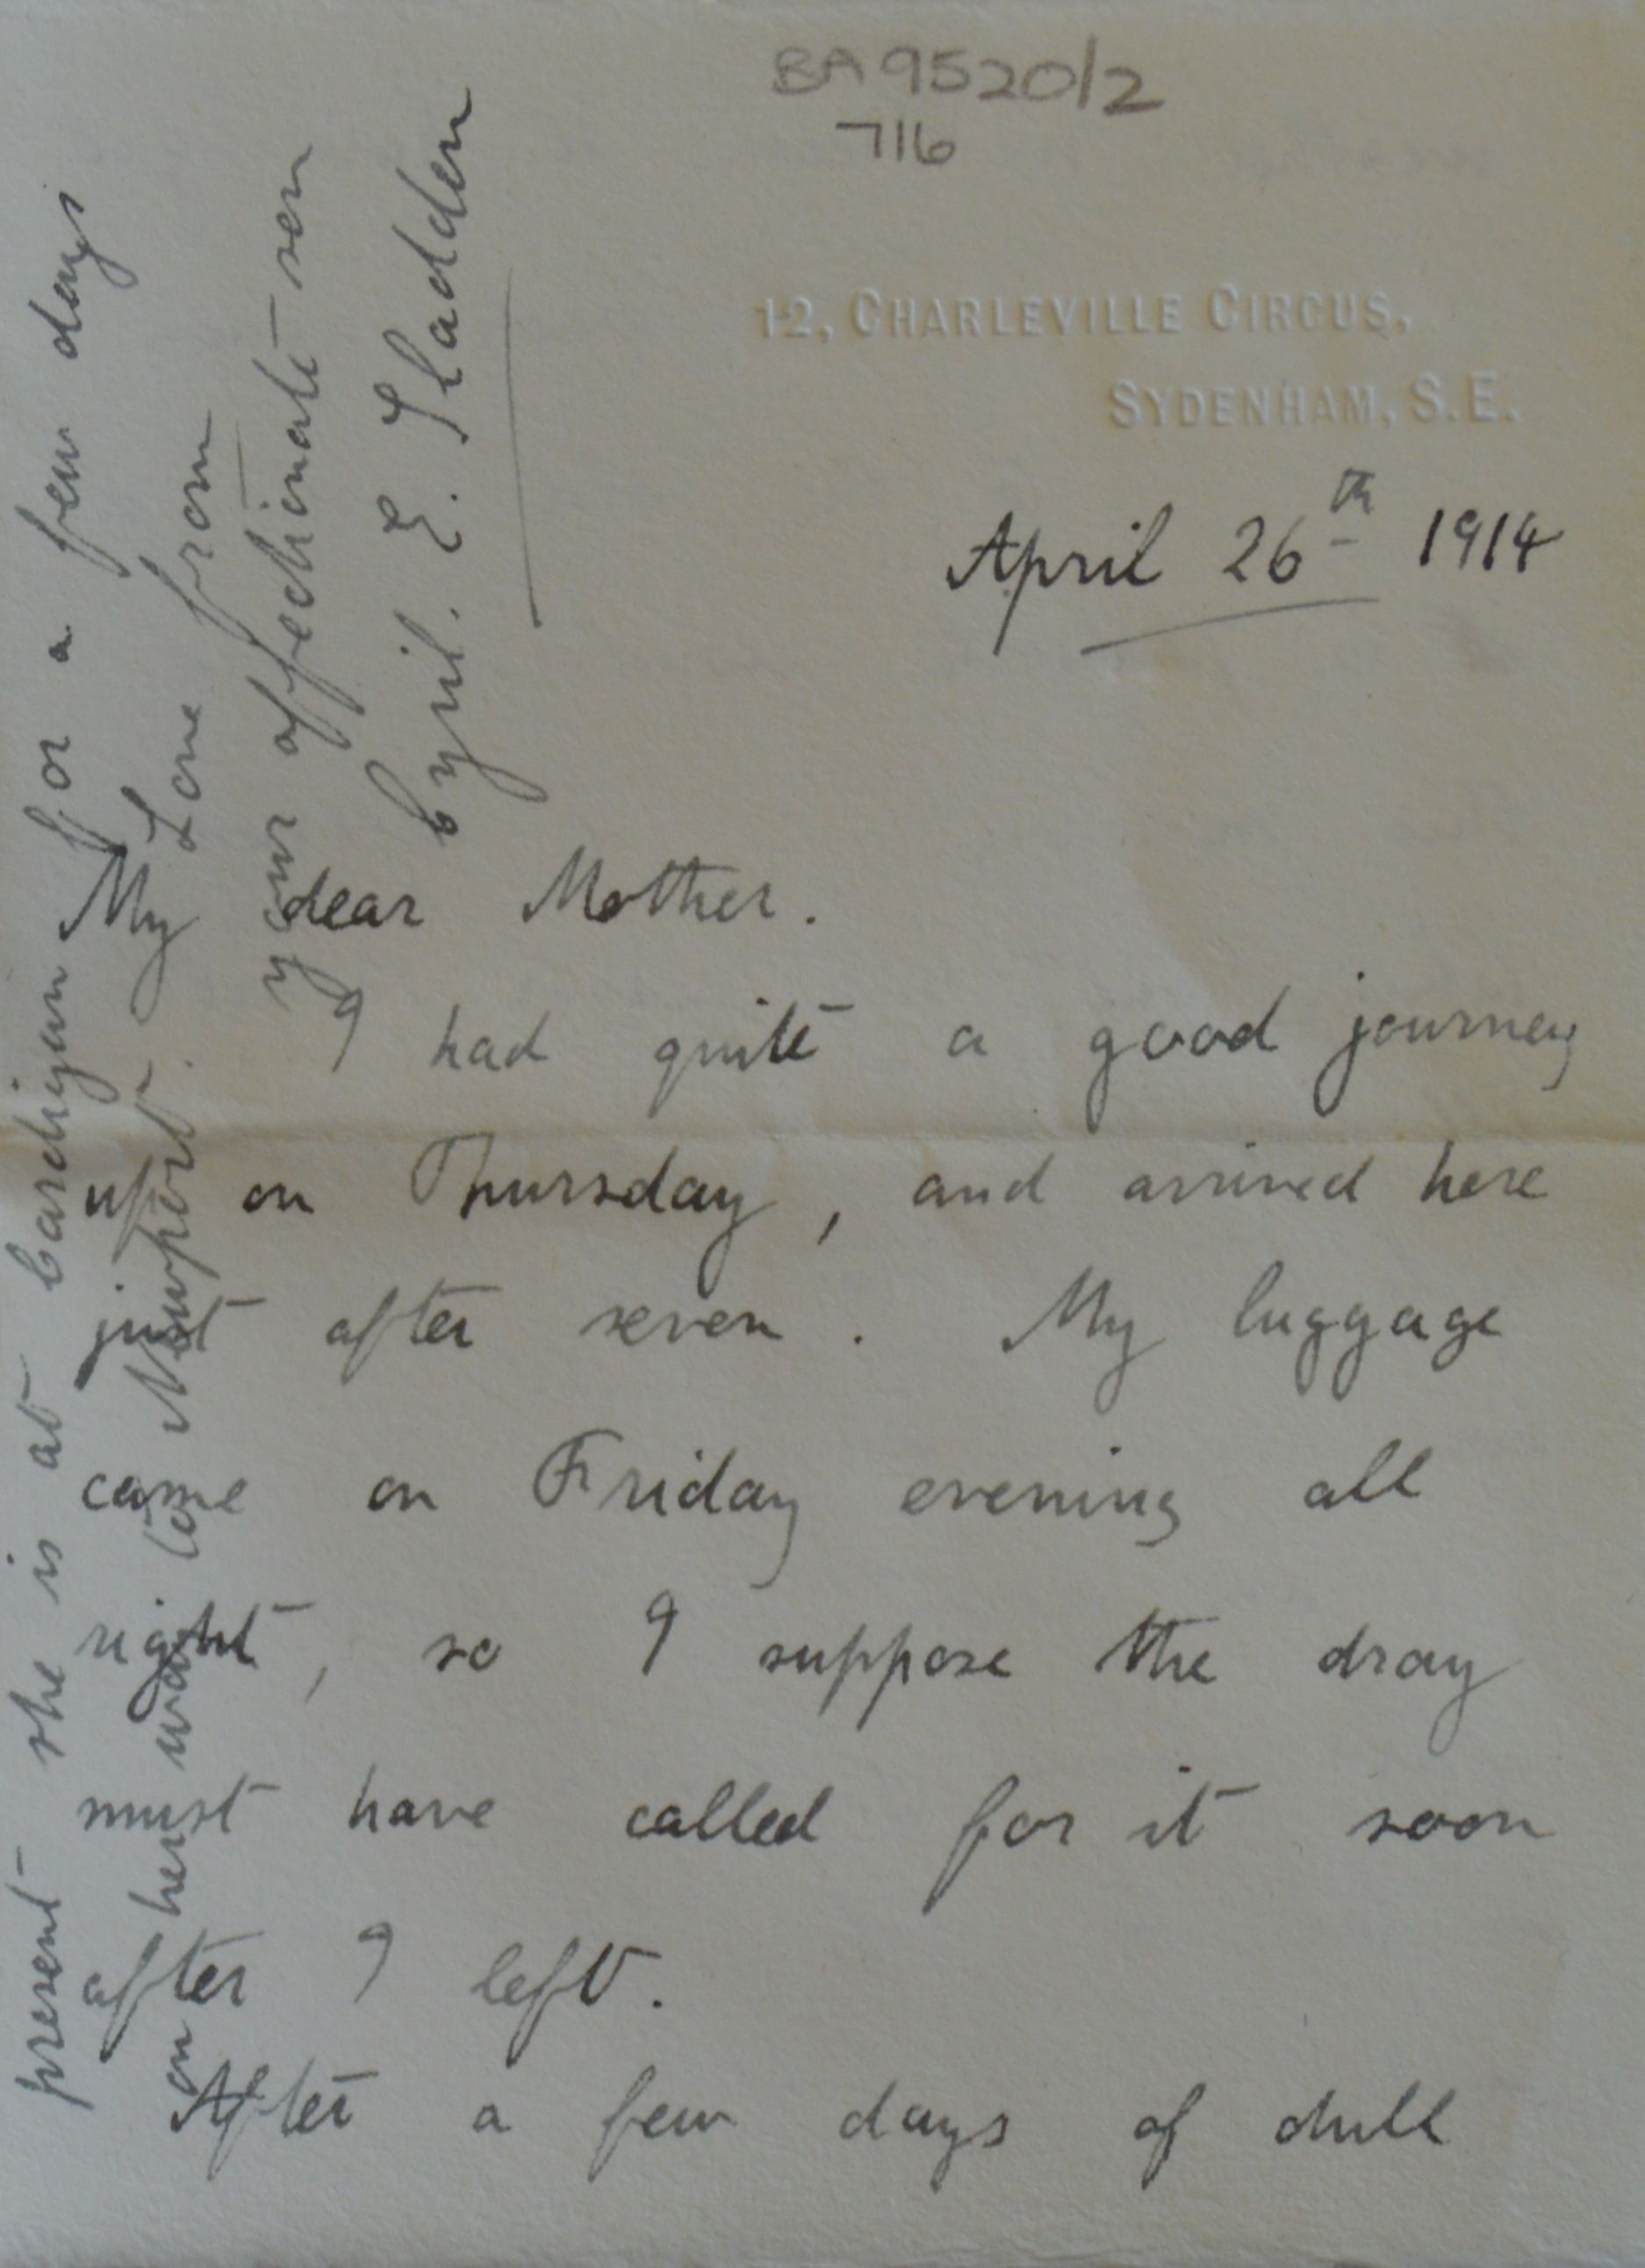 BA 9520/2
716
12, CHARLEVILLE CIRCUS,
SYDENHAM, S.E.
April 26th 1914
My dear Mother.
I had quite a good journey
up on Thursday, and arrived here
just after seven. My luggage
came on Friday evening all
right, so I suppose the dray
must have called for it soon
after I left.
After a few days of dull
present she is at Cardigan for a few days
on her way to Newport.
Love from
your affectionate son
Cyril. E. Sladden